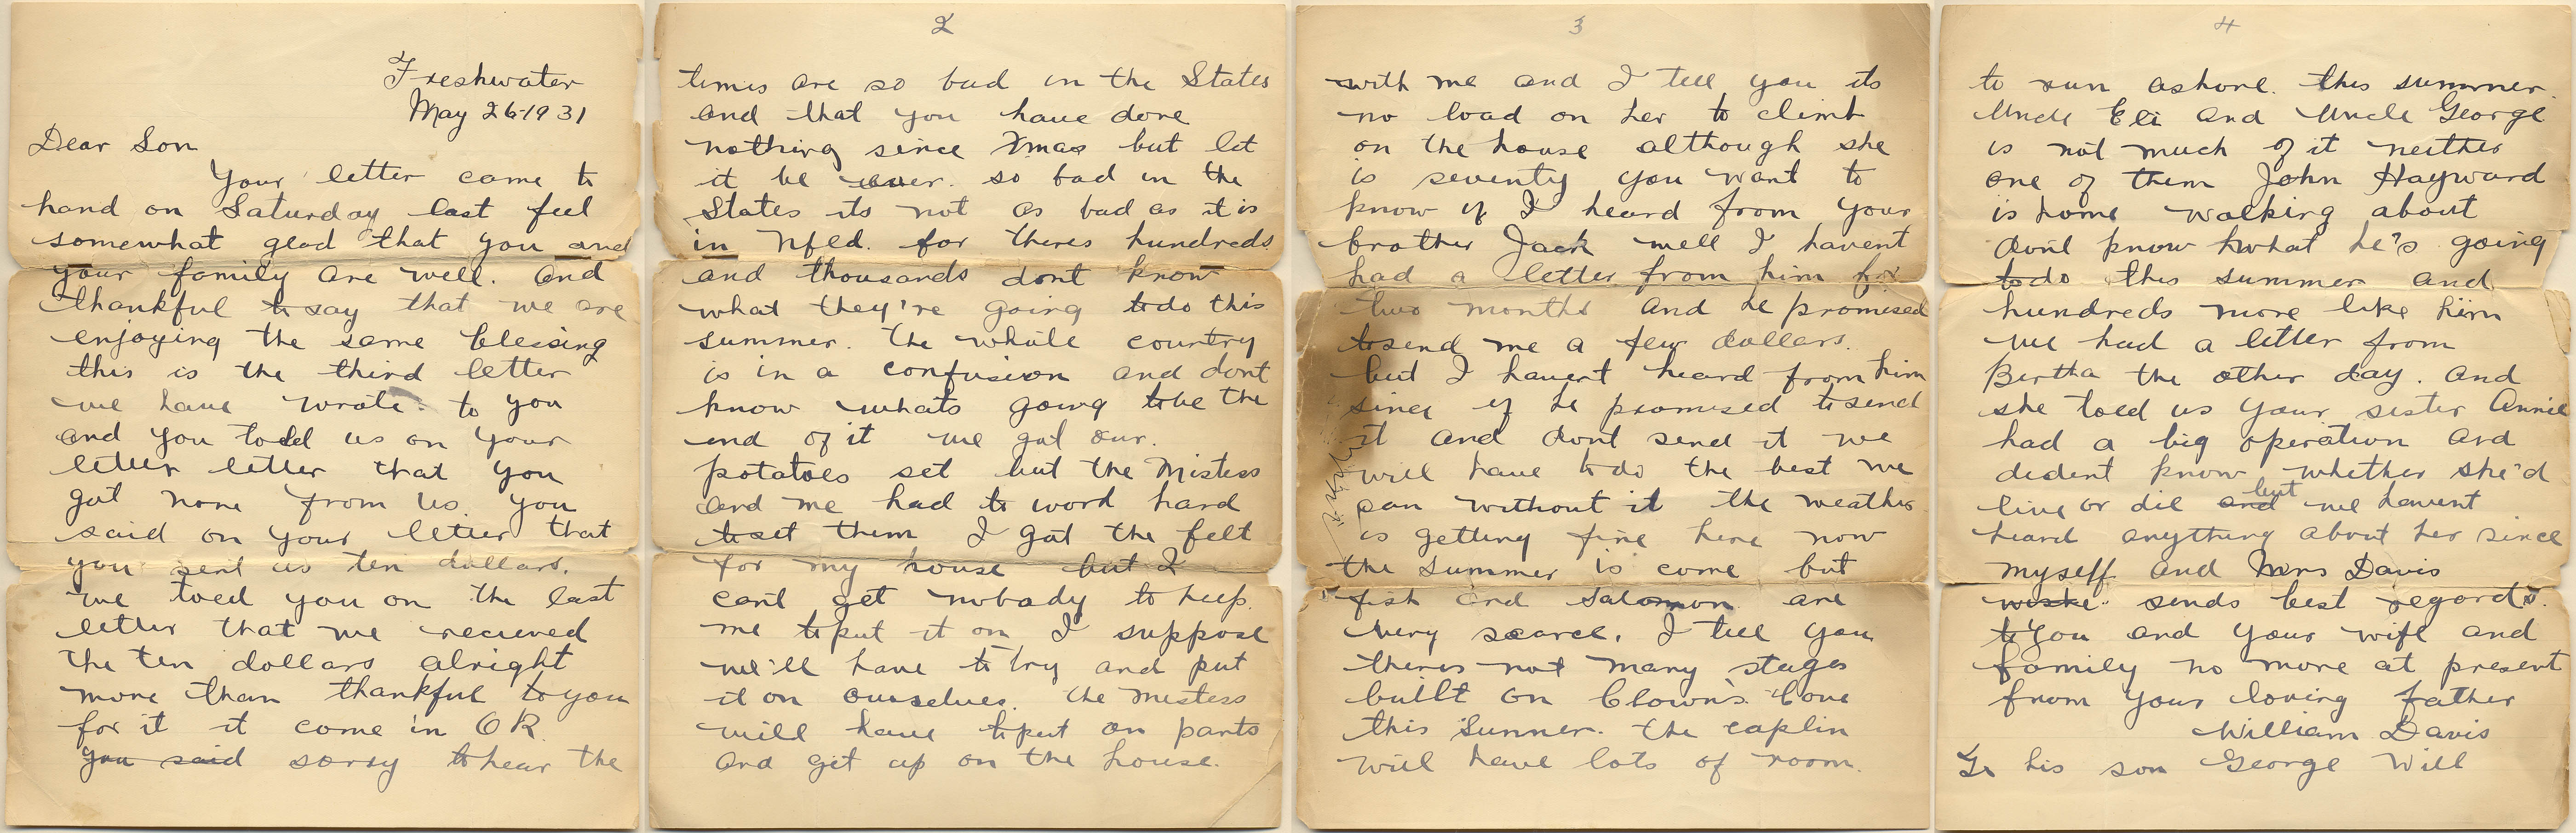 Freshwater
May 26-1931
Dear Son
Your letter came to
hand on Saturday last feel
somewhat glad that you and
your family are well. and
thankful to say that we are
enjoying the same blessing
this is the third letter
we have wrote to you
and you told us on your
letter letter that you
got none from us. you
said on your letter that
you sent us ten dollars.
we toed you on the last
letter that we recieved
the ten dollars alright
more than thankful to you
for it it come in OK
you said sorry to hear the
2
times are so bad in the States
and that you have done
nothing since Xmas but let
it be ever so bad in the
States its not as bad as it is
in Nfld. for theres hundreds
and thousands dont know
what they're going to do this
summer. the whole country
is in a confusion and dont
know whats going to be the
end of it we got our.
potatoes set but the Mistess
and me had to word hard
to set them I got the felt
for my house but I
cant get nobody to help
me to put it on I suppose
we'll have to try and put
it on ourselves. the mistess
will have to put on pants
and get up on the house.
3
with me and I tell you its
no load on her to climb
on the house although she
is seventy you want to
know if I heard from your
brother Jack well I havent
had a letter from him for
two months and he promised
to send me a few dollars.
but I havent heard from him
since if he promised to send
it and dont send it we
will have to do the best we
can without it the weather
is getting fine here now
the summer is come but
fish and salomon are
very scarce. I tell you
theres not many stages
built on Clown's Cove
this Summer. the caplin
will have lots of room.
4
to run ashore. this summer.
Uncle Eli and Uncle George
is not much of it neither
one of them John Hayward
is home walking about
dont know what he's going
to do this summer and
hundreds more like him
we had a letter from
Bertha the other day. and
she toed us your sister Annie
had a big operation and
dident know whether she'd
live or die and but we havent
heard anything about her since
myself and Mrs Davis
sends best regards.
to you and your wife and
family no more at present
from your loving father
William Davis
To his son George Will